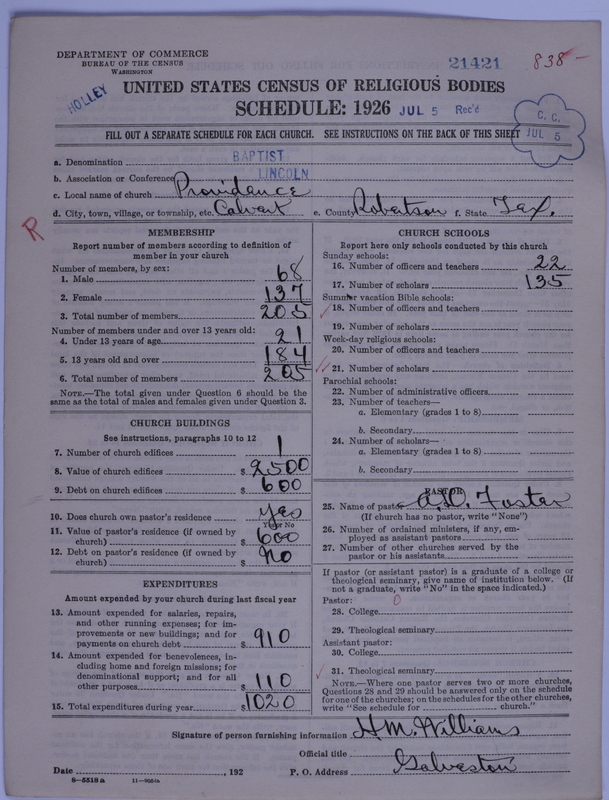 DEPARTMENT OF COMMERCE
BUREAU OF THE CENSUS
WASHINGTON
21421
838-
HOLLEY
UNITED STATES CENSUS OF RELIGIOUS BODIES
SCHEDULE: 1926 JUL 5 Rec'd
C. C.
JUL 5
FILL OUT A SEPARATE SCHEDULE FOR EACH CHURCH. SEE INSTRUCTIONS ON THE BACK OF THIS SHEET
a. Denomination BAPTIST
b. Association or Conference LINCOLN
c. Local name of church Providence
d. City, town, village, or township, etc. Calvert e. County Robertson f. State Tex.
R
MEMBERSHIP
Report number of members according to definition of
member in your church
Number of members, by sex:
1. Male 68
2. Female 137
3. Total number of members 205
Number of members under and over 13 years old:
4. Under 13 years of age 21
5. 13 years old and over 184
6. Total number of members 205
NOTE.—The total given under Question 6 should be
the same as the total of males and females given under Question 3.
CHURCH BUILDINGS
See instructions, paragraphs 10 to 12
7. Number of church edifices 1
8. Value of church edifices $ 2500
9. Debt on church edifices $ 600
10. Does church own pastor's residence yes
Yes or No
11. Value of pastor's residence (if owned by
church) $ 600
12. Debt on pastor's residence (if owned by
church) $ No
EXPENDITURES
Amount expended by your church during last fiscal year
13. Amount expended for salaries, repairs,
and other running expenses; for im-
provements or new buildings; and for
payments on church debt $ 910
14. Amount expended for benevolences, in-
cluding home and foreign missions; for
denominational support; and for all
other purposes $ 110
15. Total expenditures during year $ 1020
CHURCH SCHOOLS
Report here only schools conducted by this church
Sunday schools:
16. Number of officers and teachers 22
17. Number of scholars 135
Summer vacation Bible schools:
18. Number of officers and teachers
19. Number of scholars
Week-day religious schools:
20. Number of officers and teachers
21. Number of scholars
Parochial schools:
22. Number of administrative officers
23. Number of teachers—
a. Elementary (grades 1 to 8)
b. Secondary
24. Number of scholars—
a. Elementary (grades 1 to 8)
b. Secondary
PASTOR
25. Name of pastor Foster
(If church has no pastor, write "None")
26. Number of ordained ministers, if any, em-
ployed as assistant pastors
27. Number of other churches served by the
pastor or his assistants
If pastor (or assistant pastor) is a graduate of a college or
theological seminary, give name of institution below. (If
not a graduate, write "No" in the space indicated.)
Pastor: 0
28. College
29. Theological seminary
Assistant pastor:
30. College
31. Theological seminary
NOTE.—Where one pastor serves two or more churches,
Questions 28 and 29 should be answered only on the schedule
for one of the churches; on the schedules for the other churches,
write "See schedule for church."
Signature of person furnishing information H.M. Williams
Official title
Date , 192 P. O. Address Galveston
8—5518 a